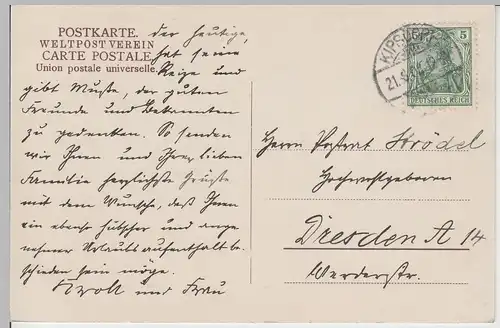 POSTKARTE.
WELTPOSTVEREIN
CARTE POSTALE
Union postale universelle.
der heutige,
hat seine
Reize und
gibt Muße, der guten
Freunde und Bekannten
zu gedenken. So senden
wir Ihnen und Ihrer lieben
Familie herzlichste Grüße
mit dem Wunsche, daß Ihnen
ein ebenso hübscher und ange
nehmer Urlaubsaufenthalt be
schieden sein möge.
und Frau
5
DEUTSCHES REICH
21.
Herrn Postrat Ströbel
Hochwohlgeboren
Dresden A 14
Werderstr.